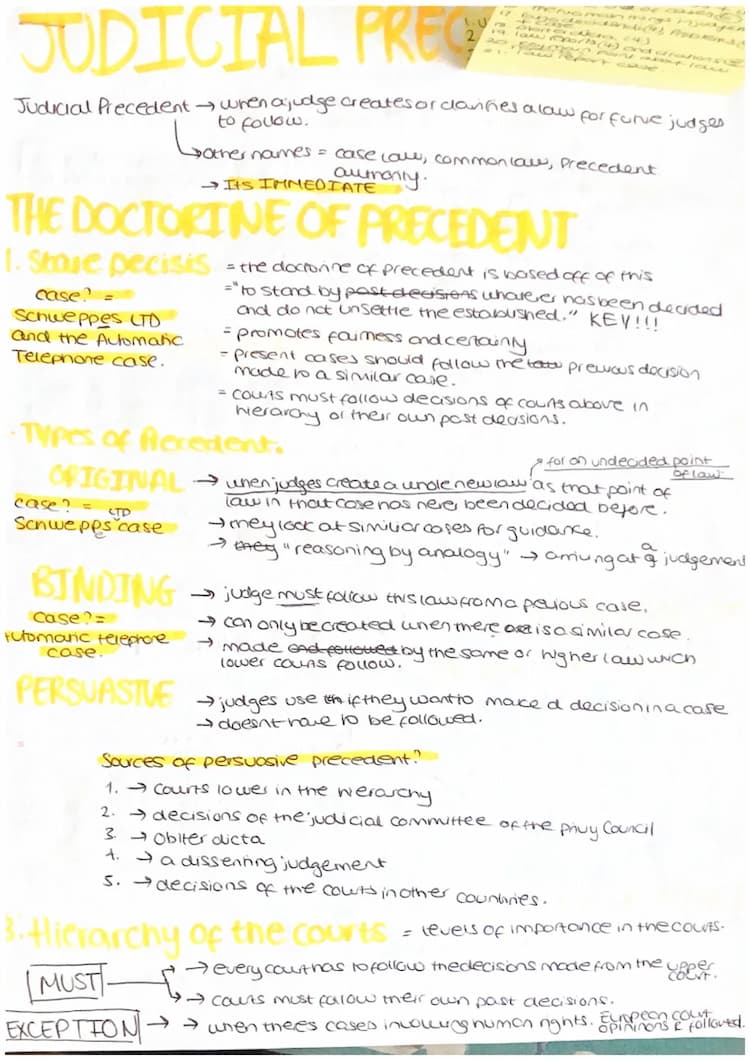 JUDICIAL PREC
1. U
2.
19. law reports (4) and
21. law report case.
Judicial Precedent → when a judge creates or clarifies a law for furure judges
to follow.
↳ other names = case law, common law, precedent
authority.
→ ITS IMMEDIATE
THE DOCTORINE OF PRECEDENT
1. Stare Decisis = the doctorine of precedent is based off of this
case? =
Schweppes LTD
and the Automatic
Telephone case.
= "to stand by past decisions whatever has been decided
and do not unsettle the established." KEY!!!
= promotes fairness and certainty
= present cases should follow the previous decision
made to a similar case.
= courts must follow decisions of courts above in
hierarchy or their own past decisions.
· Types of Precedent.
for an undecided point
of law
ORIGINAL → when judges create a whole new law as that point of
law in that case has never been decided before.
case? =
Schwepps LTD case
→ may look at similar cases for guidance.
→ they "reasoning by analogy" → arriving at a judgement
BINDING → judge must follow this law from a pevious case.
case? =
Automatic telephone
case.
→ can only be created when there is a similar case.
→ made and followed by the same or higher law which
lower courts follow.
PERSUASTVE → judges use if they want to make a decision in a case
→ doesnt have to be followed.
Sources of persuasive precedent?
1. → courts lower in the hierarchy
2. → decisions of the judicial committee of the privy Council
3. → Obiter dicta
4. → a dissenting judgement
5. → decisions of the courts in other countries.
3. Hierarchy of the courts = levels of importance in the courts.
MUST → every court has to follow the decisions made from the upper
court.
→ courts must follow their own past decisions.
EXCEPTION → → when theres cases involving human rights. European court
opininons r followed.